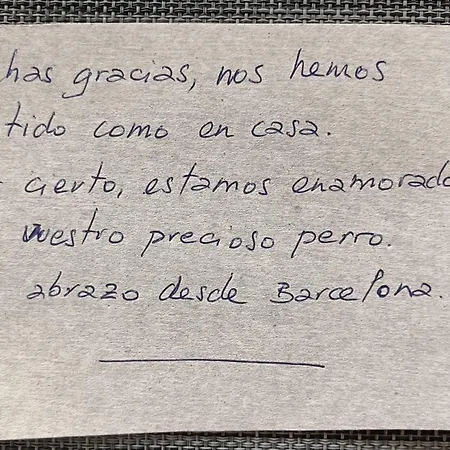 has gracias, nos hemos
tido como en casa.
cierto, estamos enamorado
vuestro precioso perro.
abrazo desde Barcelona.